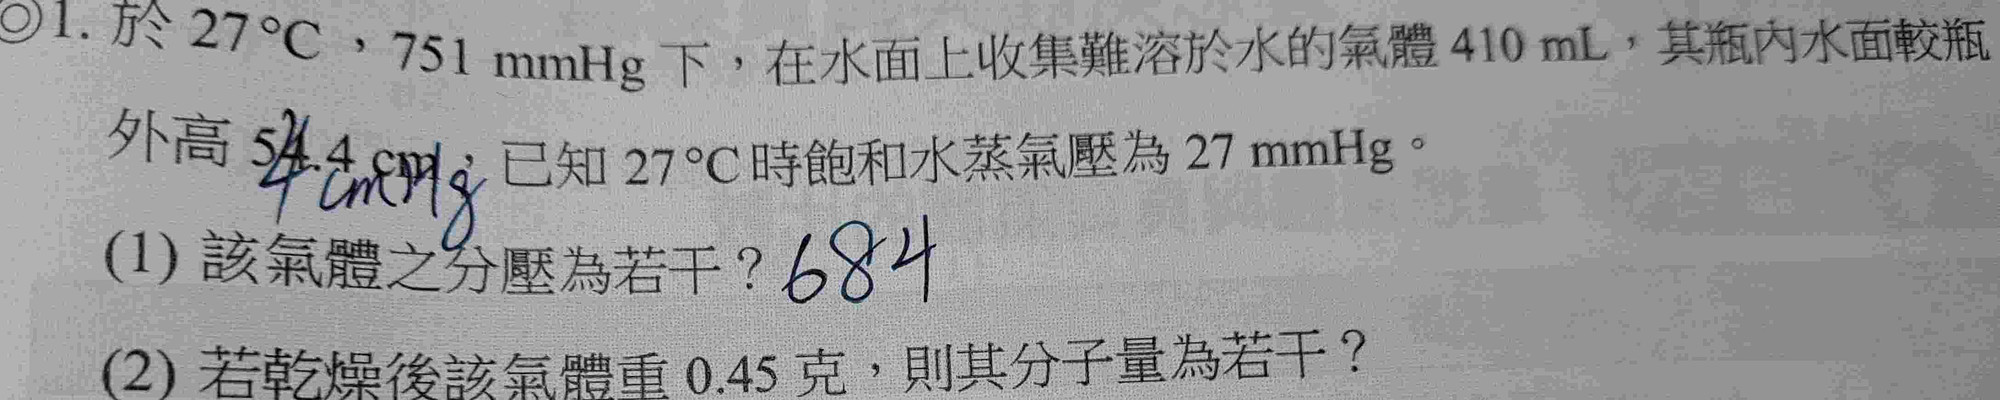 ◎1. 於 27°C，751 mmHg 下，在水面上收集難溶於水的氣體 410 mL，其瓶內水面較瓶
外高 54.4 cm，已知 27°C 時飽和水蒸氣壓為 27 mmHg。
4 cmHg
(1) 該氣體之分壓為若干？684
(2) 若乾燥後該氣體重 0.45 克，則其分子量為若干？